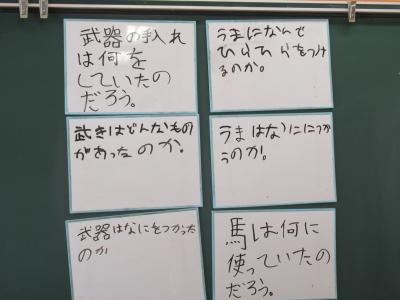 武器の手入れ
は何を
していたの
だろう。
うまになんで
ひらひらをつけ
るのか。
武きはどんなもの
があったのか。
うまはなににつか
うのか。
武器はなにをつかった
のか
馬は何に
使っていたの
だろう。